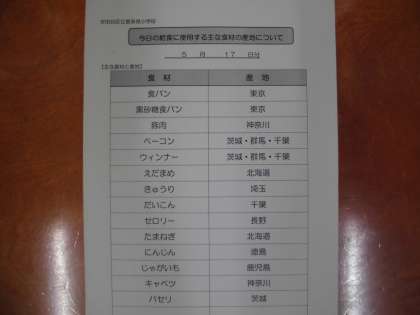 今日の給食に使用する主な食材の産地について
5 月 17 日分
【主な食材と産地】
食 材 産 地
食パン 東京
黒砂糖食パン 東京
豚肉 神奈川
ベーコン 茨城・群馬・千葉
ウィンナー 茨城・群馬・千葉
えだまめ 北海道
きゅうり 埼玉
だいこん 千葉
セロリー 長野
たまねぎ 北海道
にんじん 徳島
じゃがいも 鹿児島
キャベツ 神奈川
パセリ 茨城